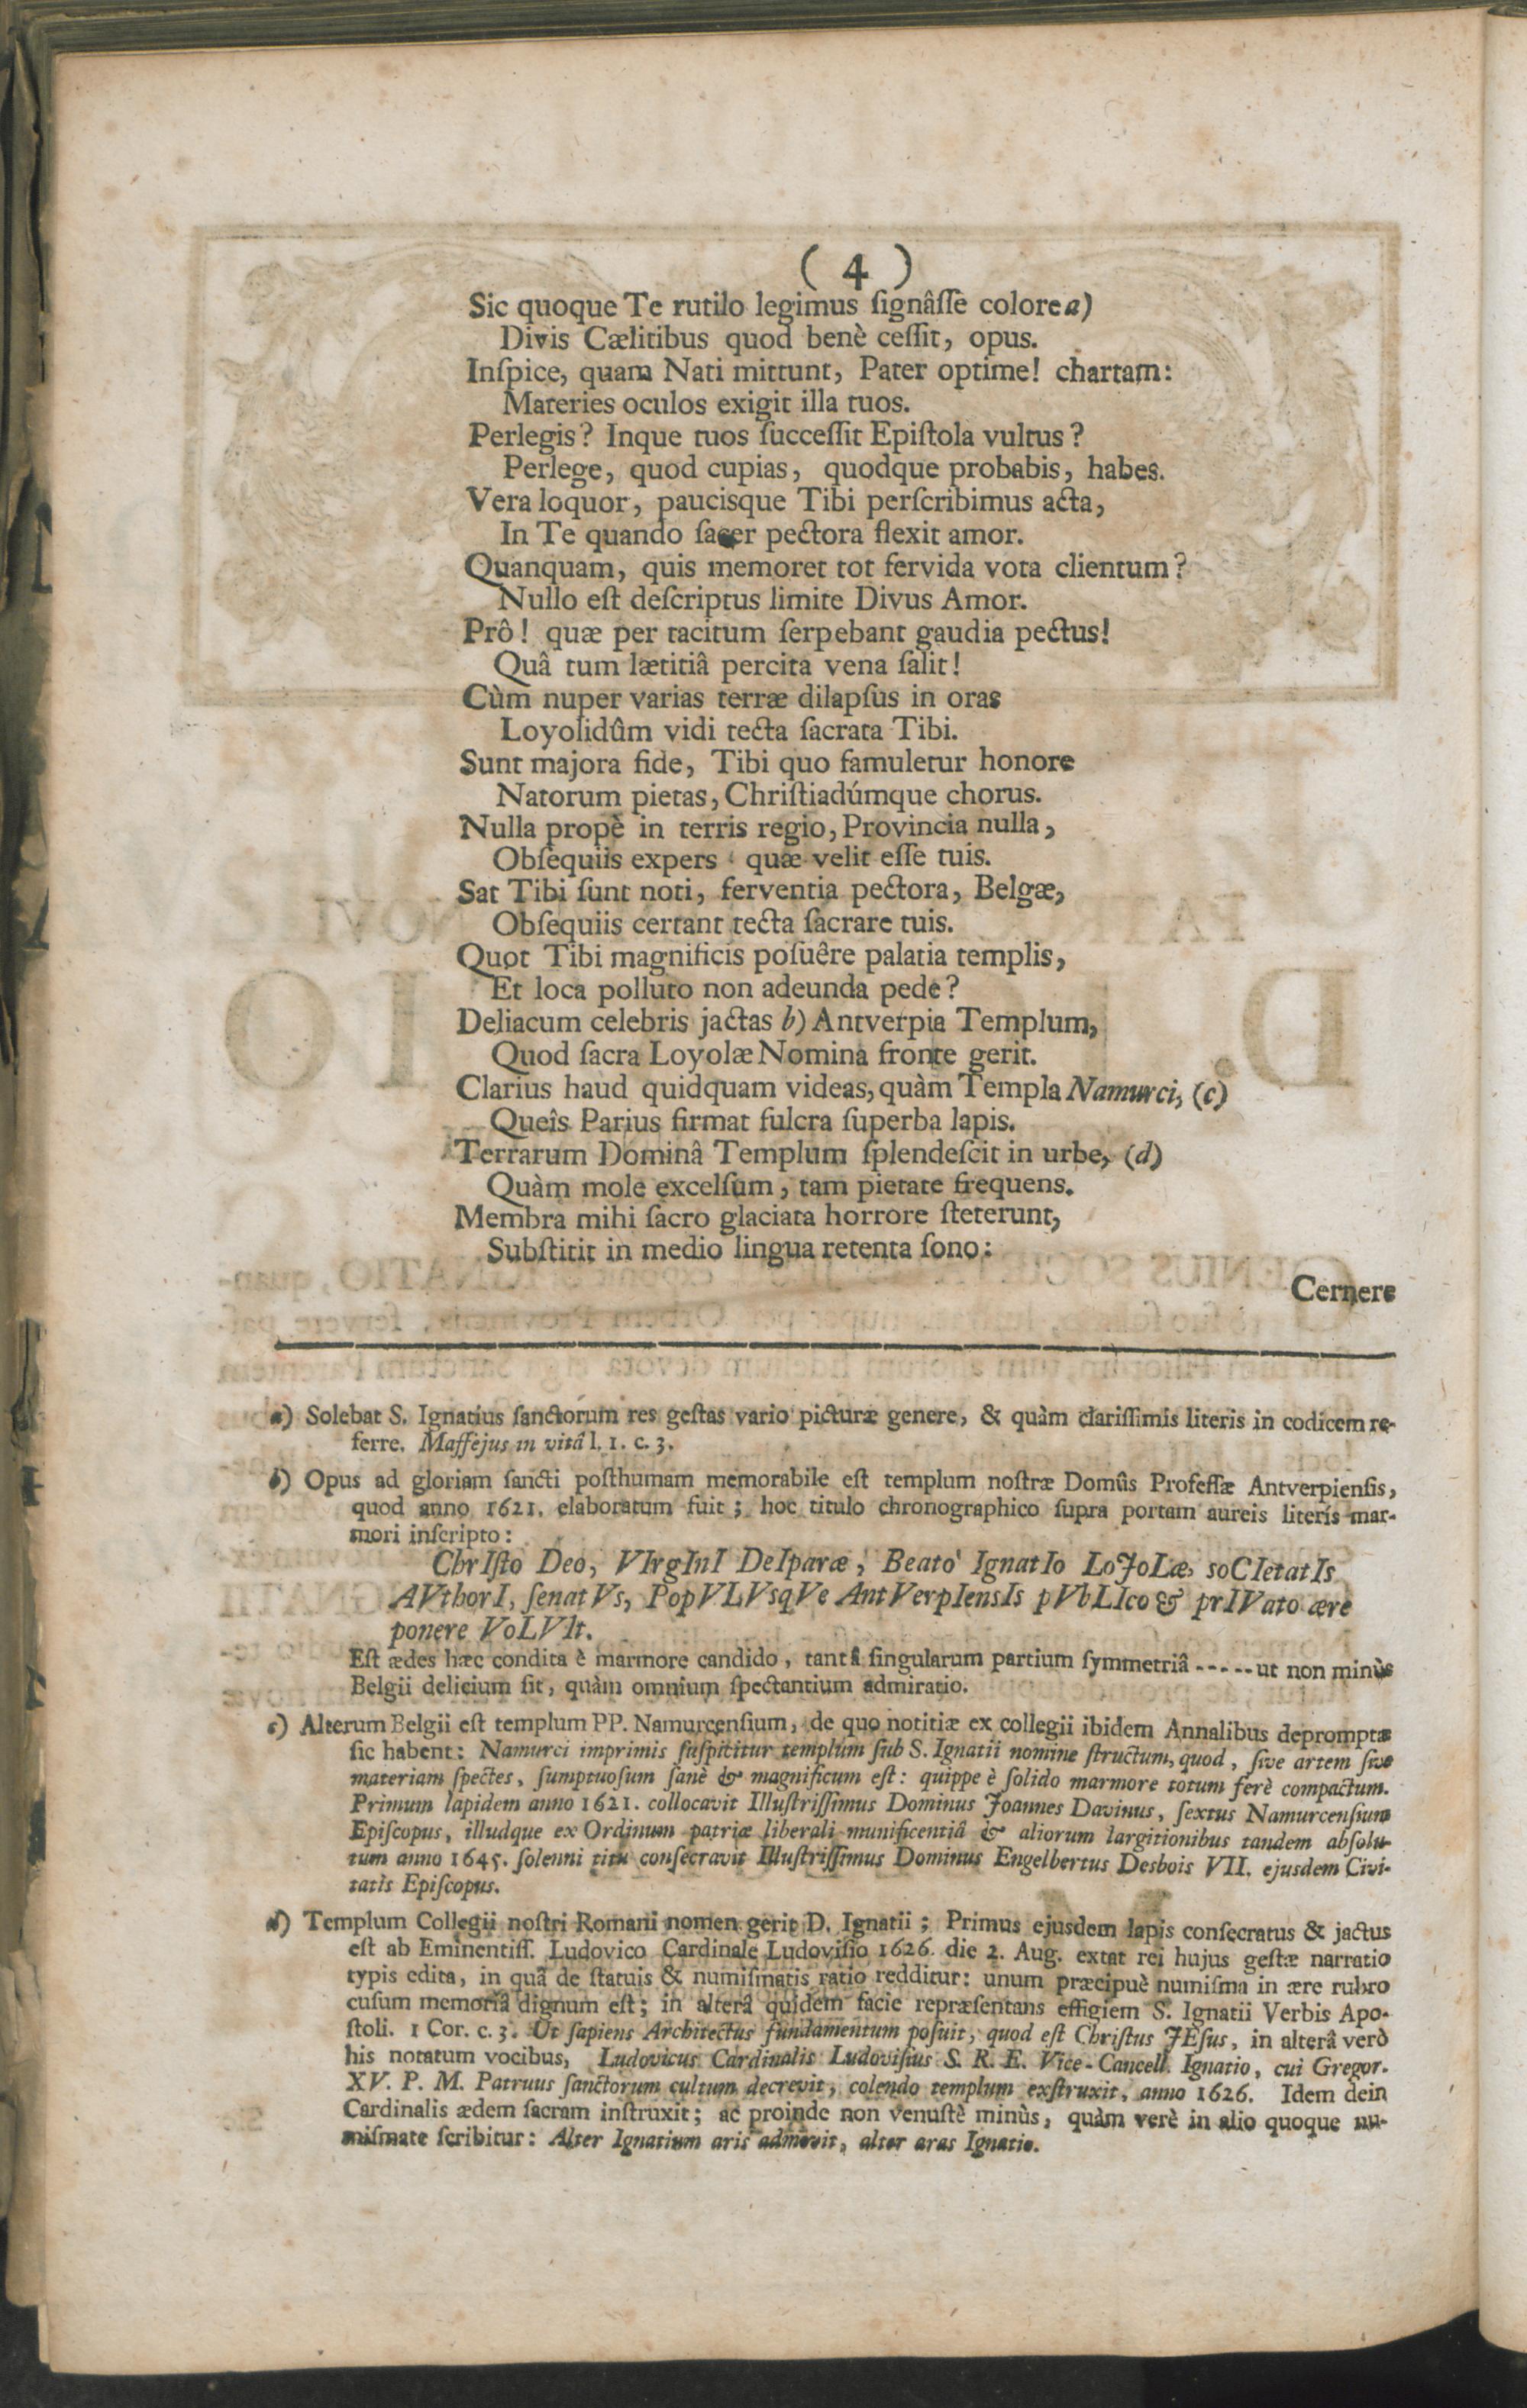 ( 4 )
Sic quoque Te rutilo legimus ſignâſſe colore a)
Divis Cælitibus quod benè ceſſit, opus.
Inſpice, quam Nati mittunt, Pater optime! chartam:
Materies oculos exigit illa tuos.
Perlegis? Inque tuos ſucceſſit Epiſtola vultus?
Perlege, quod cupias, quodque probabis, habes.
Vera loquor, paucisque Tibi perſcribimus acta,
In Te quando ſacer pectora flexit amor.
Quanquam, quis memoret tot fervida vota clientum?
Nullo eſt deſcriptus limite Divus Amor.
Prô! quæ per tacitum ſerpebant gaudia pectus!
Quâ tum lætitiâ percita vena ſalit!
Cùm nuper varias terræ dilapſus in oras
Loyolidûm vidi tecta ſacrata Tibi.
Sunt majora fide, Tibi quo famuletur honore
Natorum pietas, Chriſtiadúmque chorus.
Nulla propè in terris regio, Provincia nulla,
Obſequiis expers quæ velit eſſe tuis.
Sat Tibi ſunt noti, ferventia pectora, Belgæ,
Obſequiis certant tecta ſacrare tuis.
Quot Tibi magnificis poſuêre palatia templis,
Et loca polluto non adeunda pede?
Deliacum celebris jactas b) Antverpia Templum,
Quod ſacra Loyolæ Nomina fronte gerit.
Clarius haud quidquam videas, quàm Templa Namurci, (c)
Queîs Parius firmat fulcra ſuperba lapis.
Terrarum Dominâ Templum ſplendeſcit in urbe, (d)
Quàm mole excelſum, tam pietate frequens.
Membra mihi ſacro glaciata horrore ſteterunt,
Subſtitit in medio lingua retenta ſono:
Cernere
a) Solebat S. Ignatius ſanctorum res geſtas vario picturæ genere, & quàm clariſſimis literis in codicem re-
ferre. Maffejus in vitâ l. 1. c. 3.
b) Opus ad gloriam ſancti poſthumam memorabile eſt templum noſtræ Domûs Profeſſæ Antverpienſis,
quod anno 1621. elaboratum fuit; hoc titulo chronographico ſupra portam aureis literis mar-
mori inſcripto:
ChrIſto Deo, VIrgInI DeIparæ, Beato IgnatIo LoJoLæ, soCIetatIs
AVthorI, ſenatVs, PopVLVsqVe AntVerpIensIs pVbLIco & prIVato ære
ponere VoLVIt.
Eſt ædes hæc condita è marmore candido, tantâ ſingularum partium ſymmetriâ - - - - - ut non minùs
Belgii delicium ſit, quàm omnium ſpectantium admiratio.
c) Alterum Belgii eſt templum PP. Namurcenſium, de quo notitiæ ex collegii ibidem Annalibus depromptæ
ſic habent: Namurci imprimis ſuſpicitur templum ſub S. Ignatii nomine ſtructum, quod, ſive artem ſive
materiam ſpectes, ſumptuoſum ſanè & magnificum eſt: quippe è ſolido marmore totum ferè compactum.
Primum lapidem anno 1621. collocavit Illuſtriſſimus Dominus Joannes Davinus, ſextus Namurcenſium
Epiſcopus, illudque ex Ordinum patriæ liberali munificentiâ & aliorum largitionibus tandem abſolu-
tum anno 1645. ſolenni ritu conſecravit Illuſtriſſimus Dominus Engelbertus Desbois VII. ejusdem Civi-
tatis Epiſcopus.
d) Templum Collegii noſtri Romani nomen gerit D. Ignatii; Primus ejusdem lapis conſecratus & jactus
eſt ab Eminentiſſ. Ludovico Cardinale Ludoviſio 1626. die 2. Aug. extat rei hujus geſtæ narratio
typis edita, in quâ de ſtatuis & numiſmatis ratio redditur: unum præcipuè numiſma in ære rubro
cuſum memoriâ dignum eſt; in alterâ quidem facie repræſentans effigiem S. Ignatii Verbis Apo-
ſtoli. 1 Cor. c. 3. Ut ſapiens Architectus fundamentum poſuit, quod eſt Chriſtus JEſus, in alterâ verò
his notatum vocibus, Ludovicus Cardinalis Ludoviſius S. R. E. Vice-Cancell. Ignatio, cui Gregor.
XV. P. M. Patruus ſanctorum cultum decrevit, colendo templum exſtruxit, anno 1626. Idem dein
Cardinalis ædem ſacram inſtruxit; ac proinde non venuſtè minùs, quàm verè in alio quoque nu-
miſmate ſcribitur: Alter Ignatium aris admovit, alter aras Ignatio.